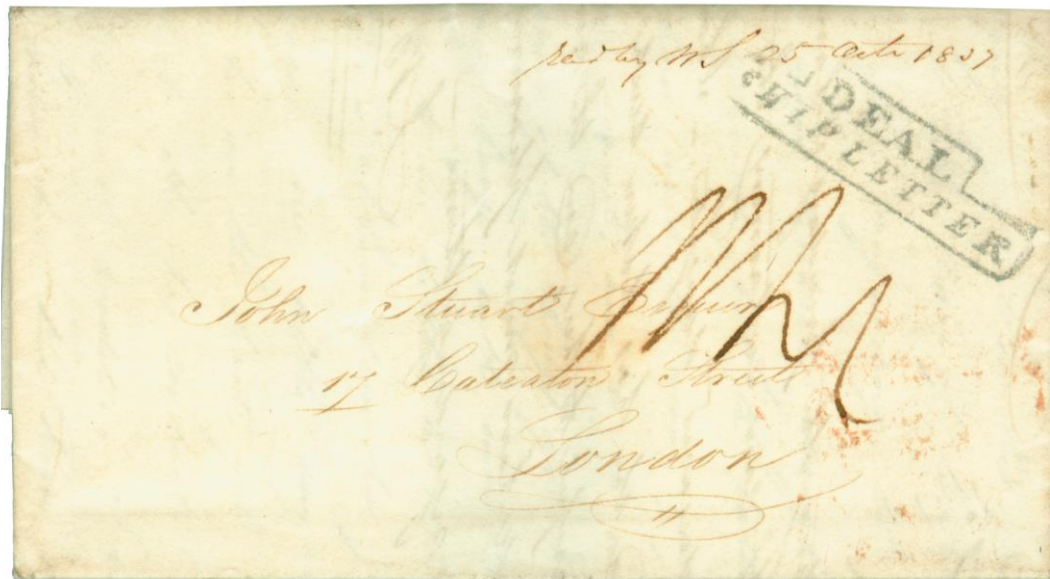 recd by WS 25 Octr 1837
DEAL
SHIP LETTER
John Stuart Esquire
17 Cateaton Street
London